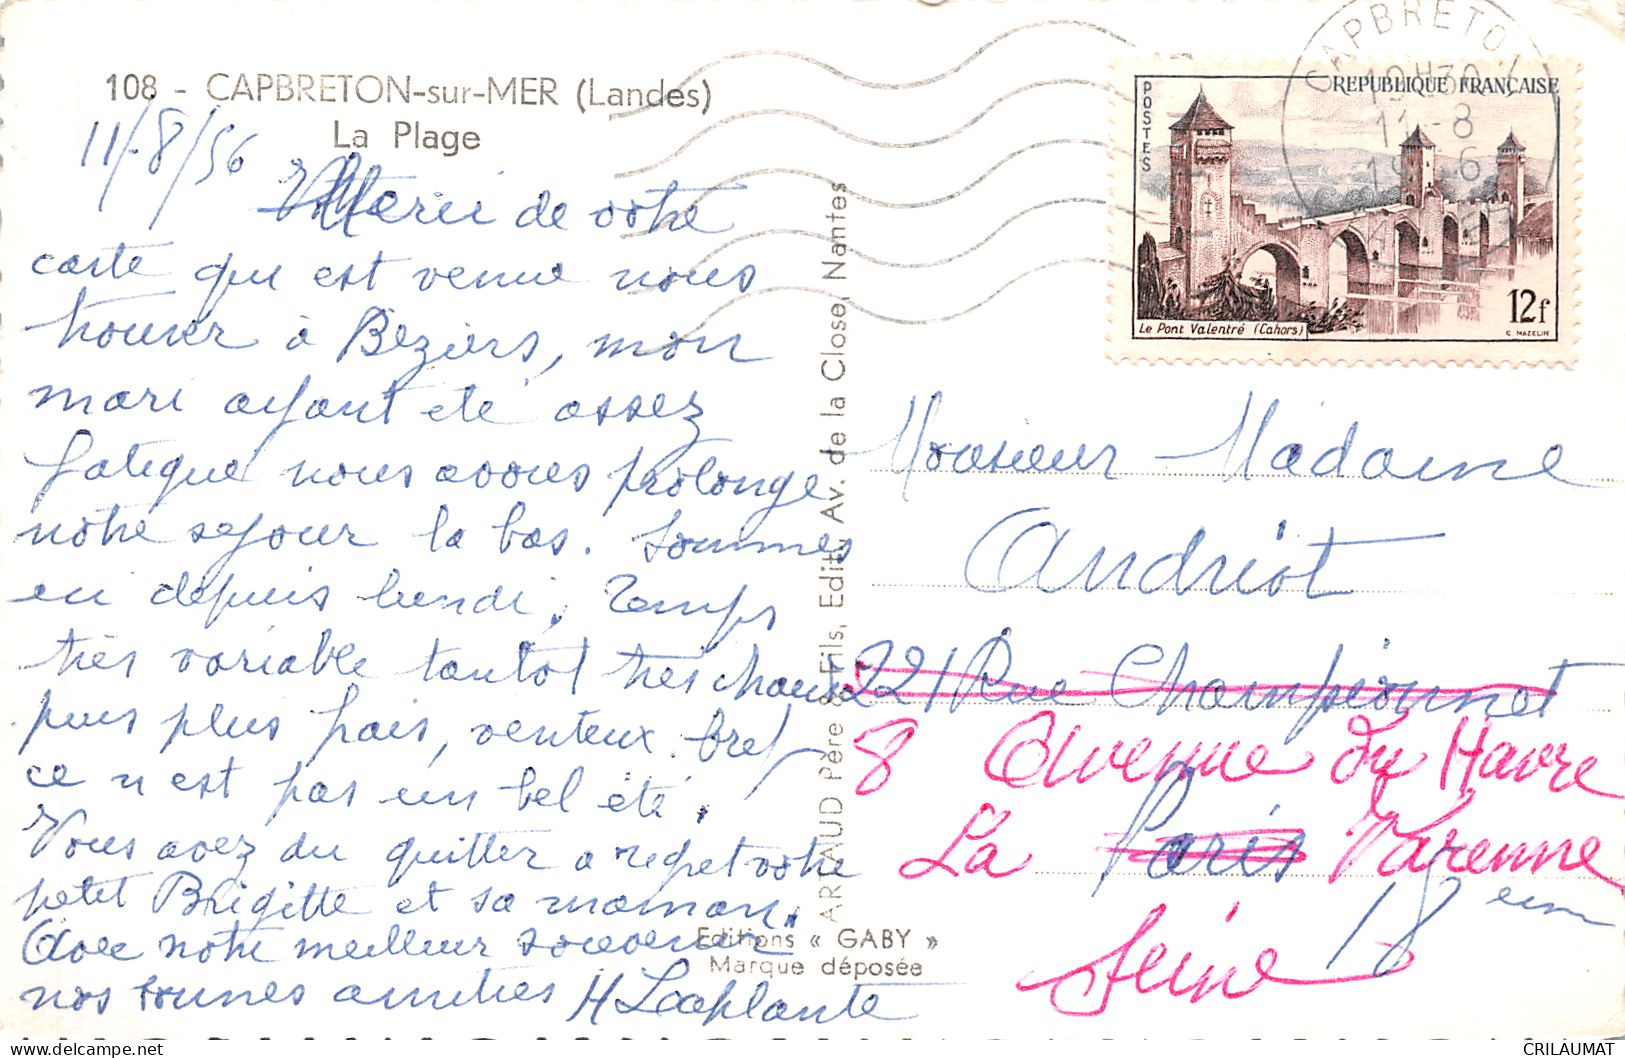 108 - CAPBRETON-sur-MER (Landes)
La Plage
11/-8/56
Merci de votre
carte qui est venue nous
trouver à Béziers, mon
mari ayant eté assez
fatigue nous avons prolonge
notre sejour la bas. Sommes
ici depuis lundi, Temps
très variable tantot très chaud
puis plus frais, venteux. bref
ce n'est pas un bel été.
Vous avez du quitter a regret votre
petit Brigitte et sa maman.
Avec notre meilleur souvenir
nos bonnes amitiés H Laplante
ARTAUD Père & Fils, Edit. Av. de la Close, Nantes
Editions « GABY »
Marque déposée
CAPBRETON
11-8
POSTES
REPUBLIQUE FRANÇAISE
Le Pont Valentré (Cahors)
12f
C. MAZELIN
Monsieur Madame
Andriot
221 Rue Championnet
8 Avenue du Havre
La Paris Varenne
18 eme
Seine
CRILAUMAT